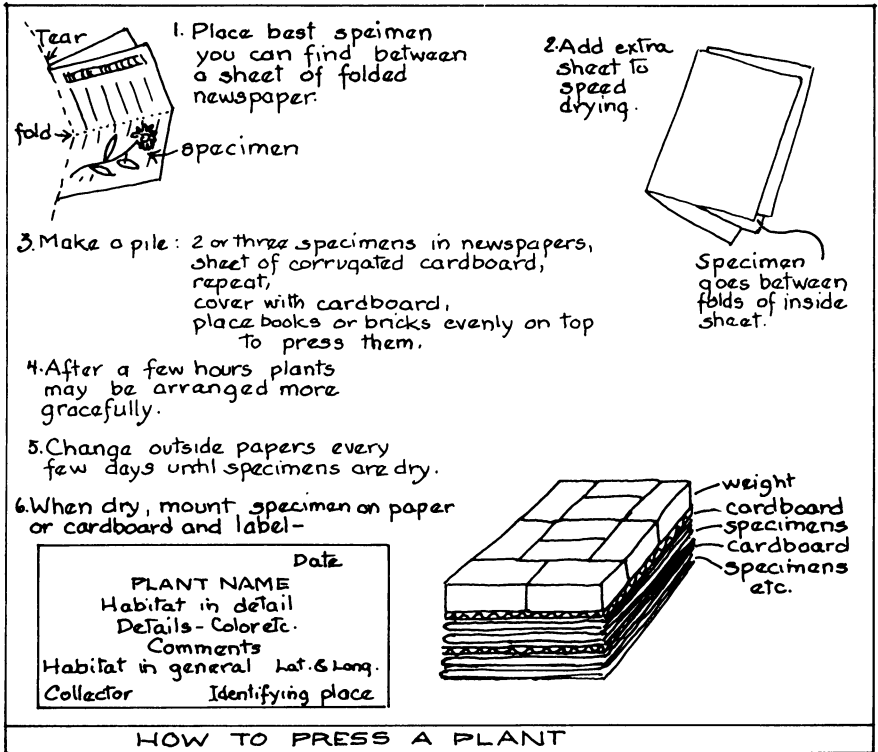 Tear
1. Place best speimen
you can find between
a sheet of folded
newspaper.
fold
specimen
2. Add extra
sheet to
speed
drying.
Specimen
goes between
folds of inside
sheet.
3. Make a pile: 2 or three specimens in newspapers,
sheet of corrugated cardboard,
repeat,
cover with cardboard,
place books or bricks evenly on top
to press them.
4. After a few hours plants
may be arranged more
gracefully.
5. Change outside papers every
few days until specimens are dry.
6. When dry, mount specimen on paper
or cardboard and label-
Date
PLANT NAME
Habitat in detail
Details - Color etc.
Comments
Habitat in general Lat. & Long.
Collector Identifying place
weight
cardboard
specimens
cardboard
specimens
etc.
HOW TO PRESS A PLANT